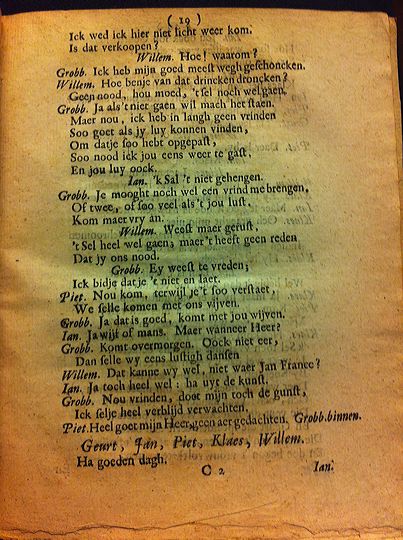 ( 19 )
Ick wed ick hier niet licht weer kom.
Is dat verkoopen?
Willem. Hoe! waarom?
Grobb. Ick heb mijn goed meest wegh geschoncken.
Willem. Hoe benje van dat drincken droncken?
Geen nood, hou moed, 't sel noch wel gaen.
Grobb. Ja als 't niet gaen wil mach het staen.
Maer nou, ick heb in langh geen vrinden
Soo goet als jy luy konnen vinden,
Om datje soo hebt opgepast,
Soo nood ick jou eens weer te gast,
En jou luy oock.
Jan. 'k Sal 't niet gehengen.
Grobb. Je mooght noch wel een vrind me brengen,
Of twee, of soo veel als 't jou lust,
Kom maer vry an.
Willem. Weest maer gerust,
't Sel heel wel gaen, maer 't heeft geen reden
Dat jy ons nood.
Grobb. Ey weest te vreden,
Ick bidje datje 't niet en laet.
Piet. Nou kom, terwijl je 't soo verstaet,
We selle komen met ons vijven.
Grobb. Ja dat is goed, komt met jou wijven.
Jan. Ja wijf of mans. Maer wanneer Heer?
Grobb. Komt overmorgen. Oock niet eer,
Dan selle wy eens lustigh dansen
Willem. Dat kanne wy wel, niet waer Jan France?
Jan. Ja toch heel wel: ha uyt de kunst.
Grobb. Nou vrinden, doot mijn toch de gunst,
Ick selje heel verblijd verwachten.
Piet. Heel goet mijn Heer, geen aer gedachten. Grobb. binnen.
Geurt, Jan, Piet, Klaes, Willem.
Ha goeden dagh.
C 2 Jan.